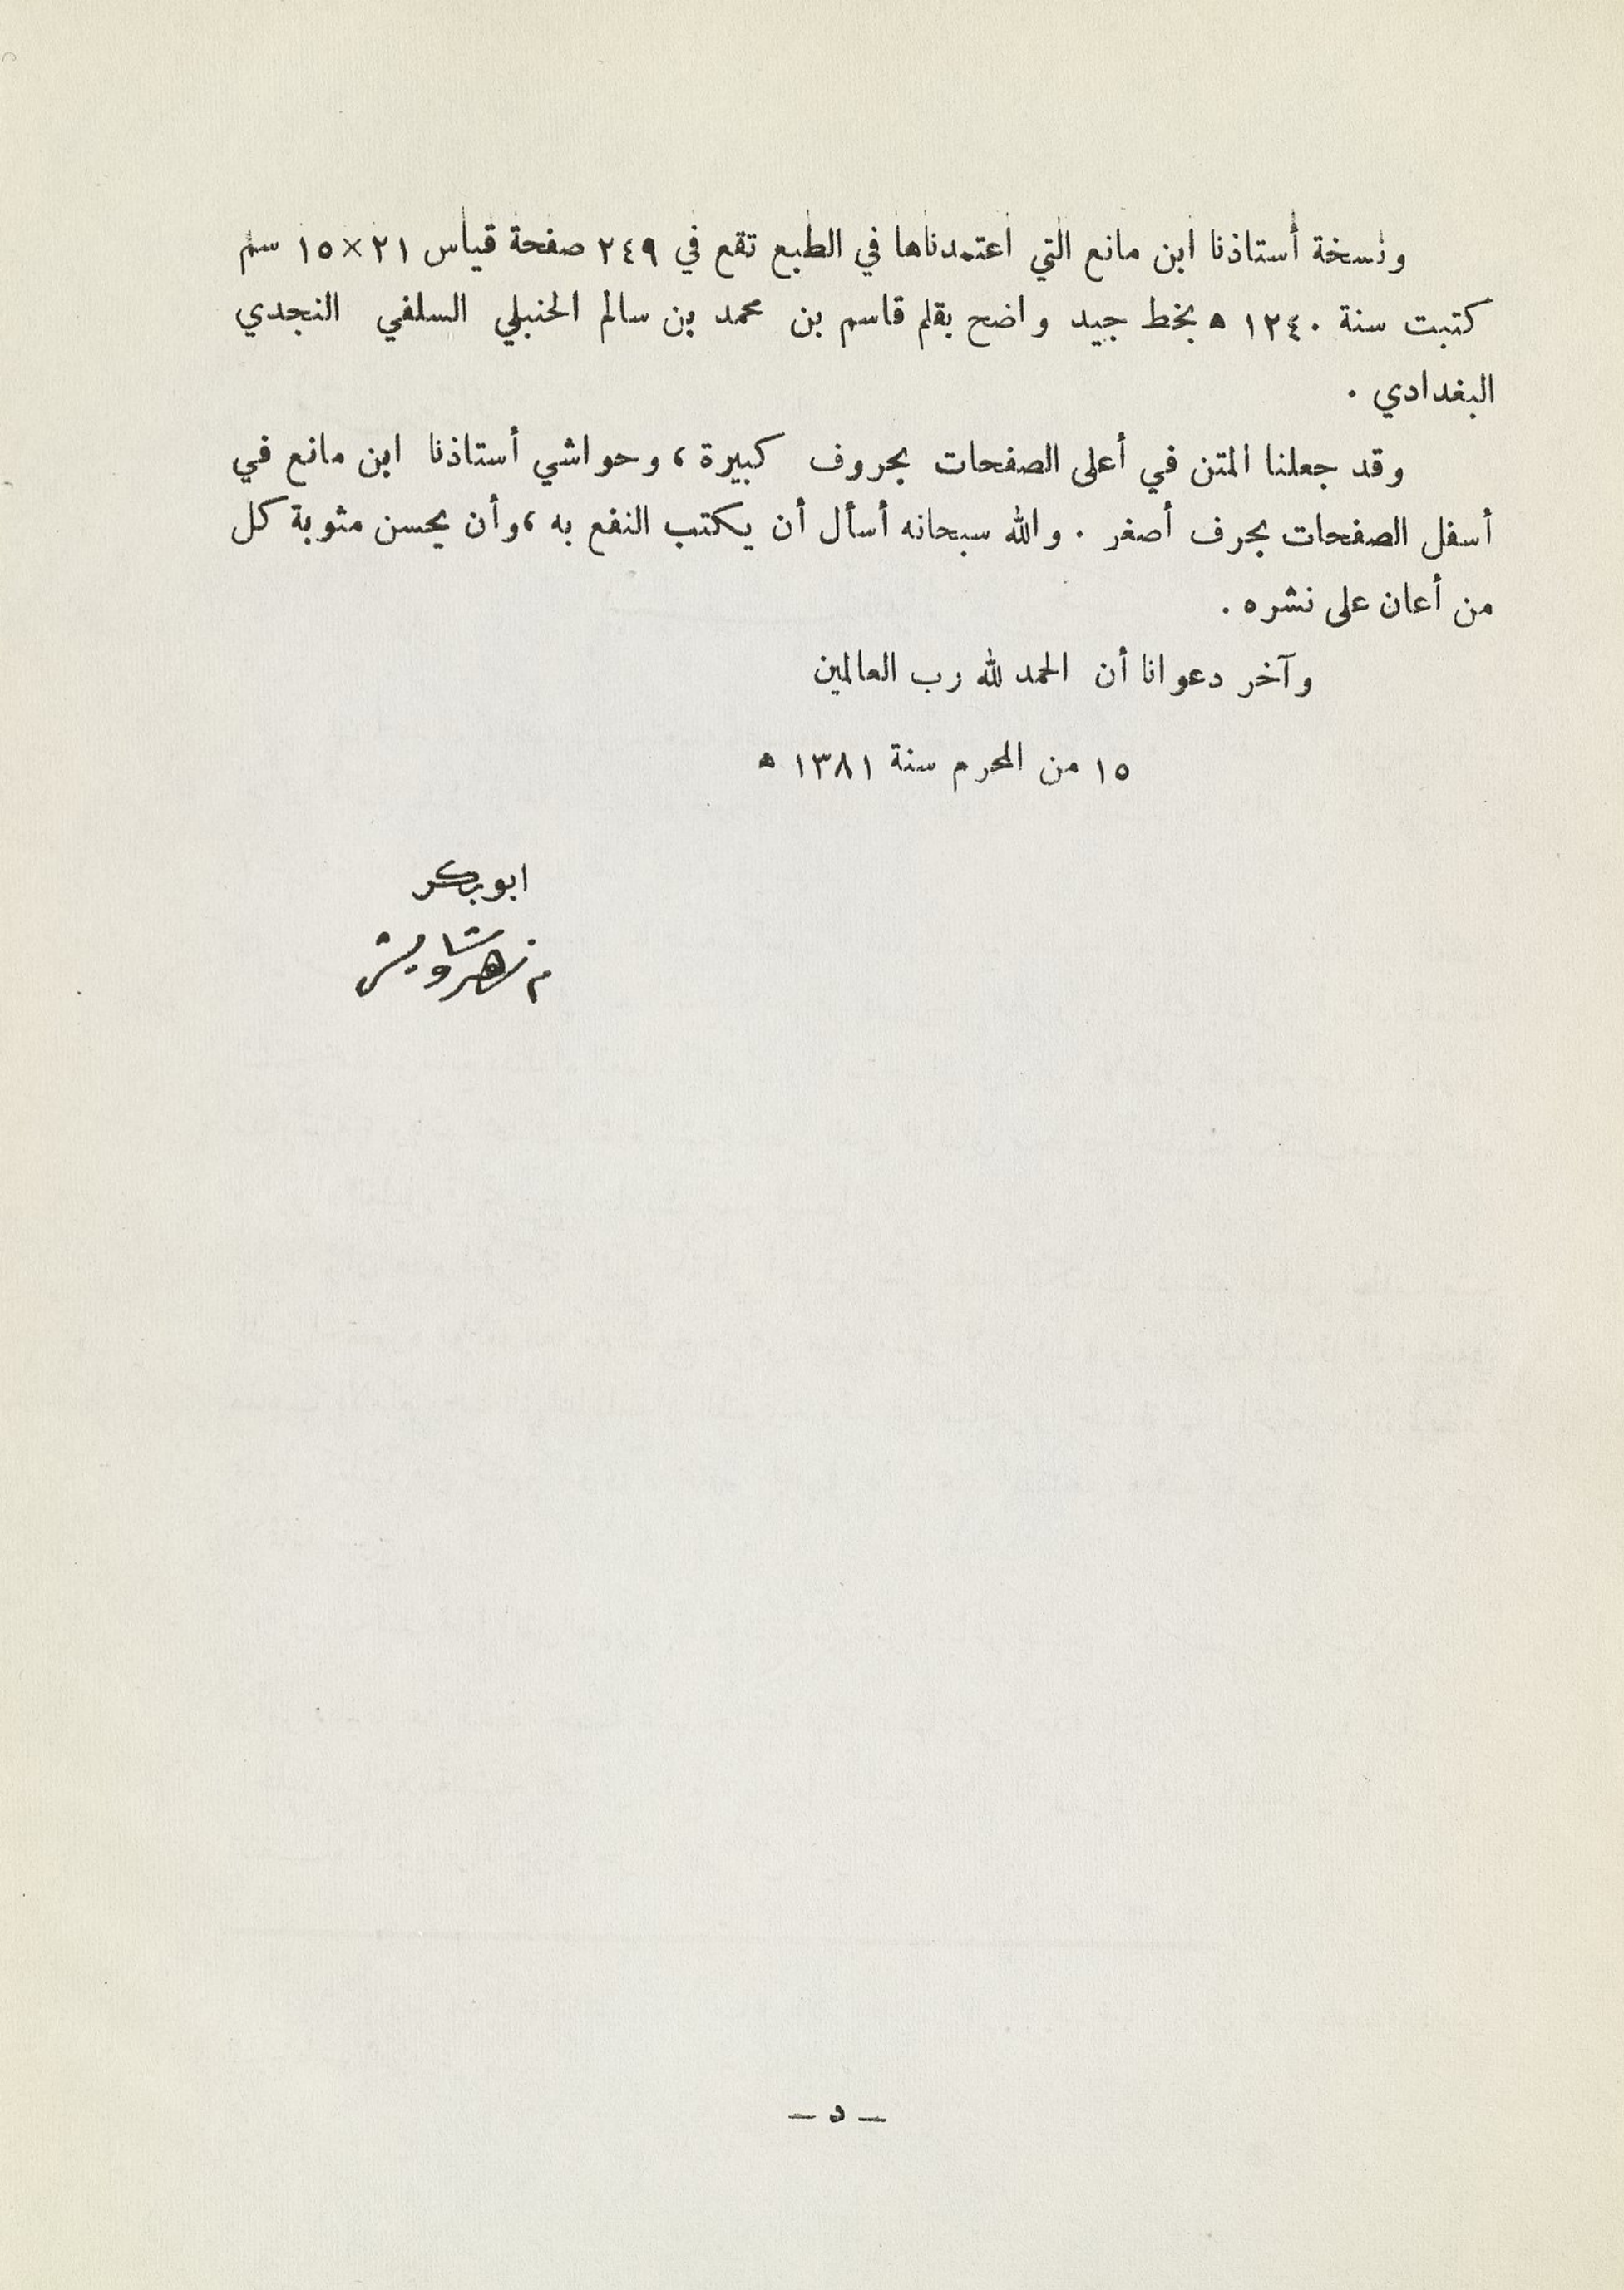 ونسخة أستاذنا ابن مانع التي اعتمدناها في الطبع تقع في ٢٤٩ صفحة قياس ٢١×١٥ سم
كتبت سنة ١٢٤٠ ه بخط جيد واضح بقلم قاسم بن محمد بن سالم الحنبلي السلفي النجدي
البغدادي .
وقد جعلنا المتن في أعلى الصفحات بحروف كبيرة ، وحواشي أستاذنا ابن مانع في
أسفل الصفحات بحرف أصغر . والله سبحانه أسأل أن يكتب النفع به ، وأن يحسن مثوبة كل
من أعان على نشره .
وآخر دعوانا أن الحمد لله رب العالمين
١٥ من المحرم سنة ١٣٨١ ه
ابو بكر
م زهير شاويش
— د —